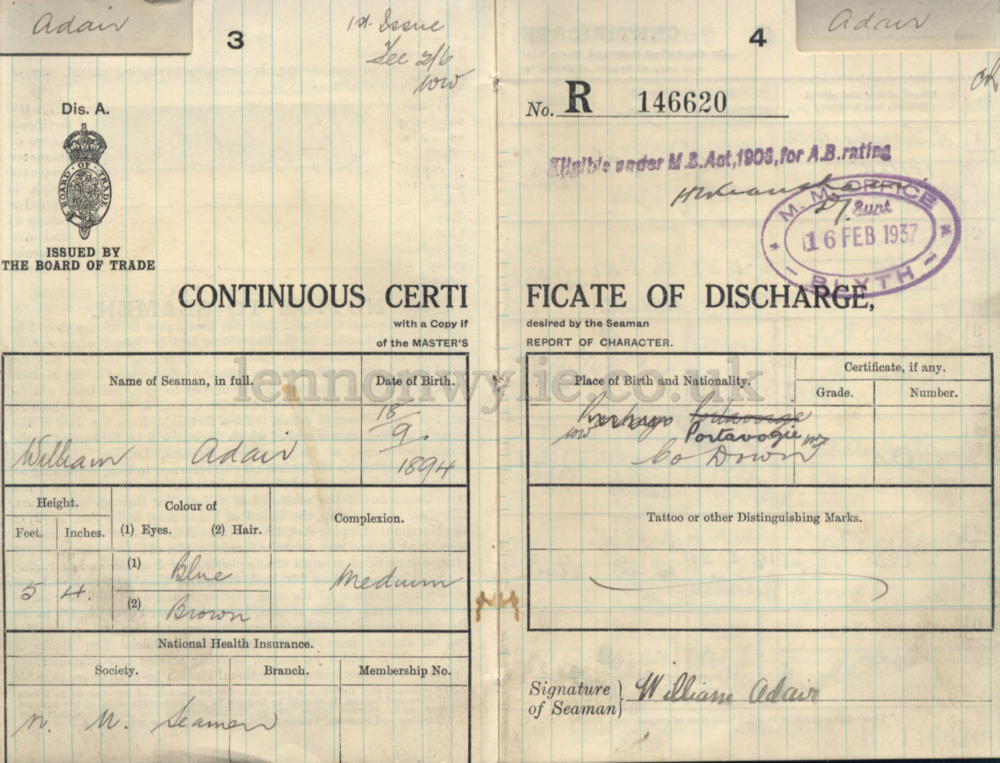 Adair
3
1st. Issue
Fee 2/6
WW
Dis. A.
BOARD OF TRADE
ISSUED BY
THE BOARD OF TRADE
CONTINUOUS CERTI
with a Copy if
of the MASTER'S
Name of Seaman, in full.
Date of Birth.
William Adair
18/9.
1894
Height.
Feet. Inches.
Colour of
(1) Eyes. (2) Hair.
Complexion.
5 4.
(1) Blue
(2) Brown
Medium
National Health Insurance.
Society.
Branch.
Membership No.
N. U. Seamen
Adair
4
No. R 146620
Eligible under M.S. Act, 1906, for A.B. rating
M. M. OFFICE
Supt
16 FEB 1937
BLYTH
FICATE OF DISCHARGE,
desired by the Seaman
REPORT OF CHARACTER.
Place of Birth and Nationality.
Certificate, if any.
Grade.
Number.
Portavogie
Co Down
Tattoo or other Distinguishing Marks.
Signature
of Seaman
William Adair
lennonwylie.co.uk